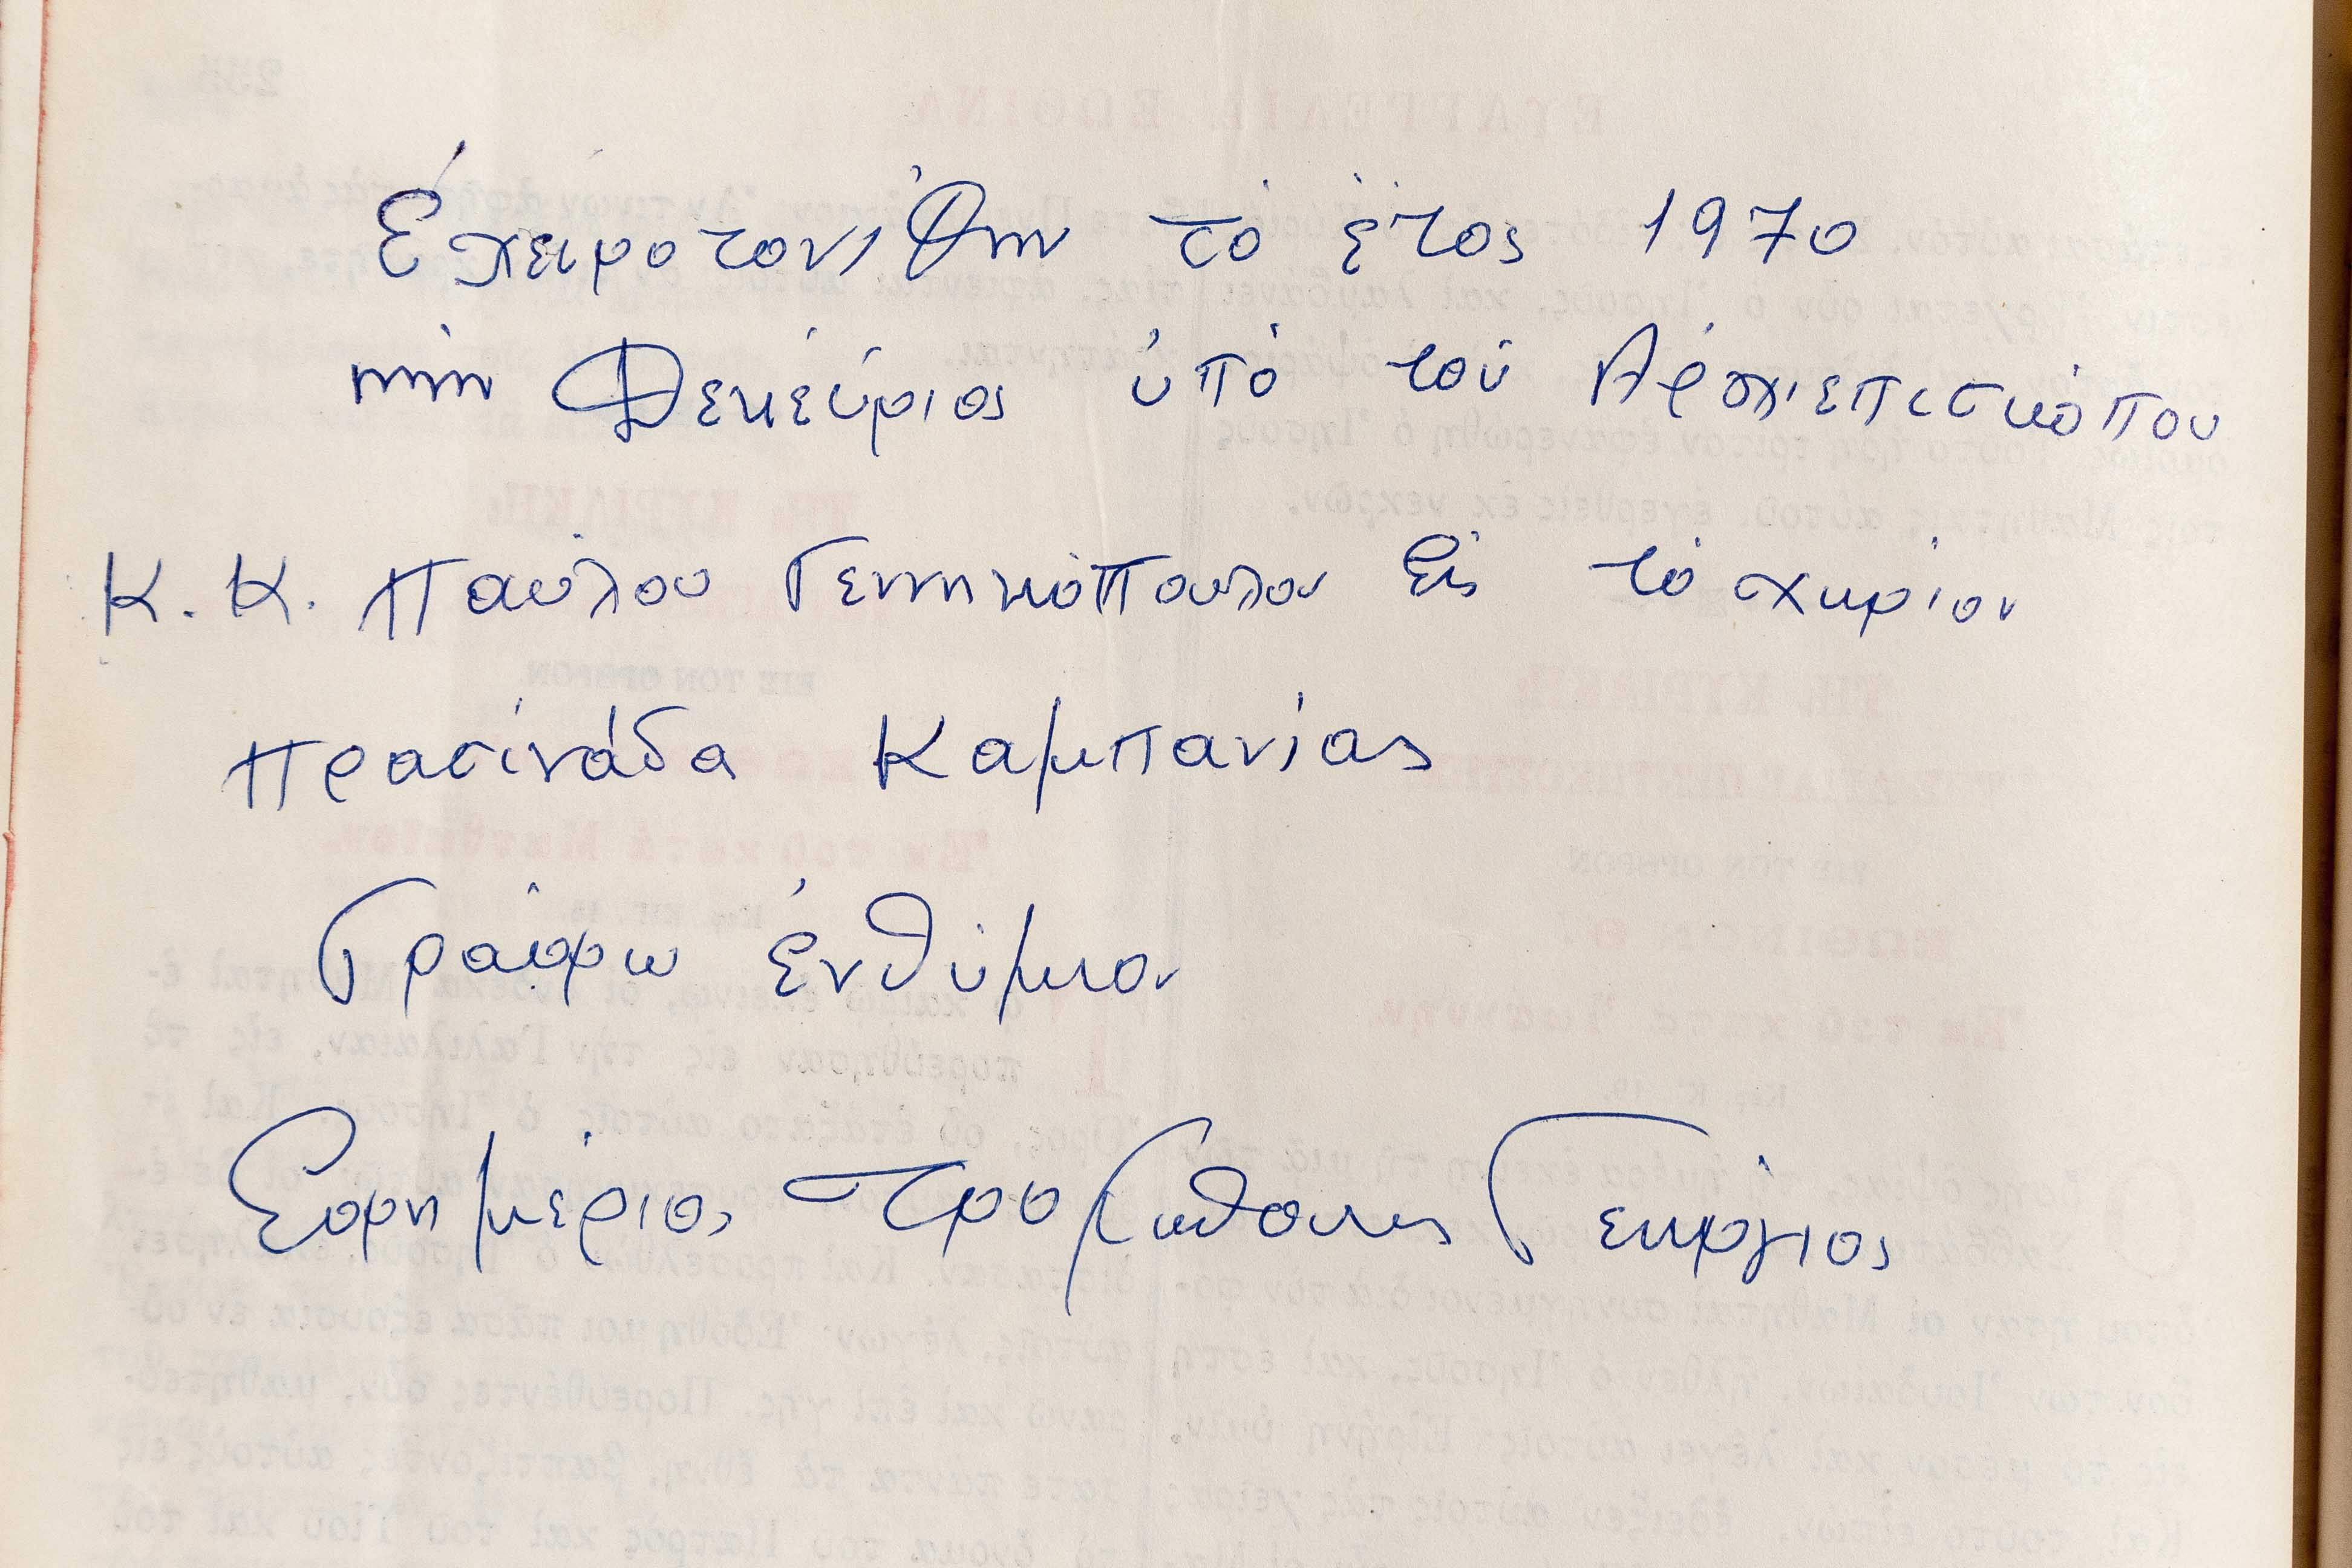 Ἐχειροτονίθην τὸ ἔτος 1970
μὴν Δεκεύριος ὑπὸ τοῦ Ἀρχιεπισκόπου
Κ. Κ. Παύλου Γεννηκόπουλου Εἰς τὸ χωρίον
Πρασίνάδα Καμπανίας
Γράφω ἐνθύμιον
Εφημέριος Γεώργιος